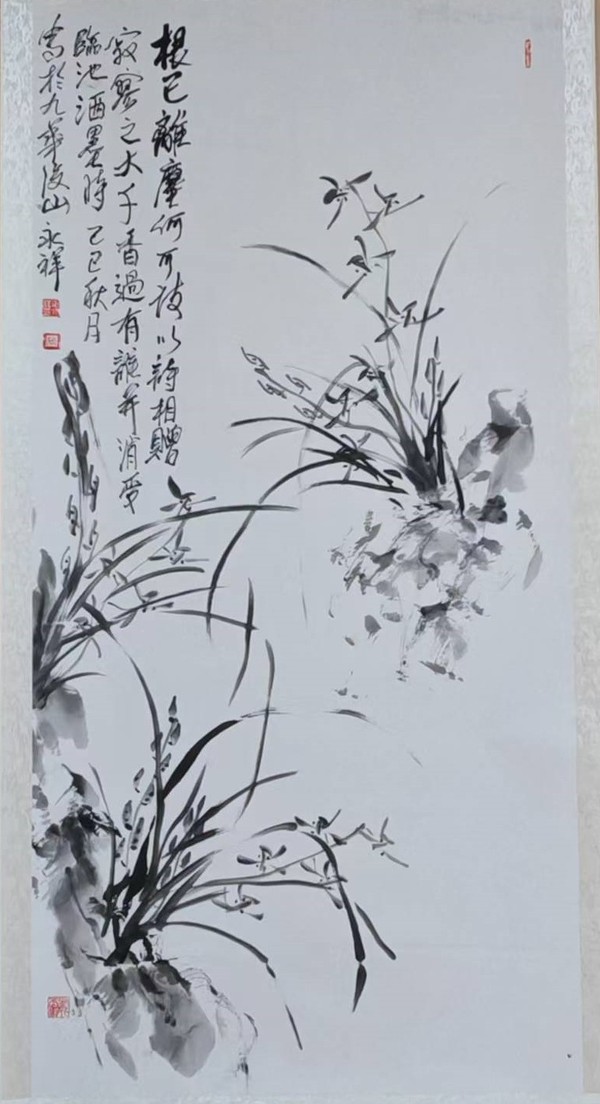 根已離塵何可詩以詩相贈
寂寥之大千香過有誰并消受
臨池洒墨時 己巳秋月
寫於九華後山 永祥